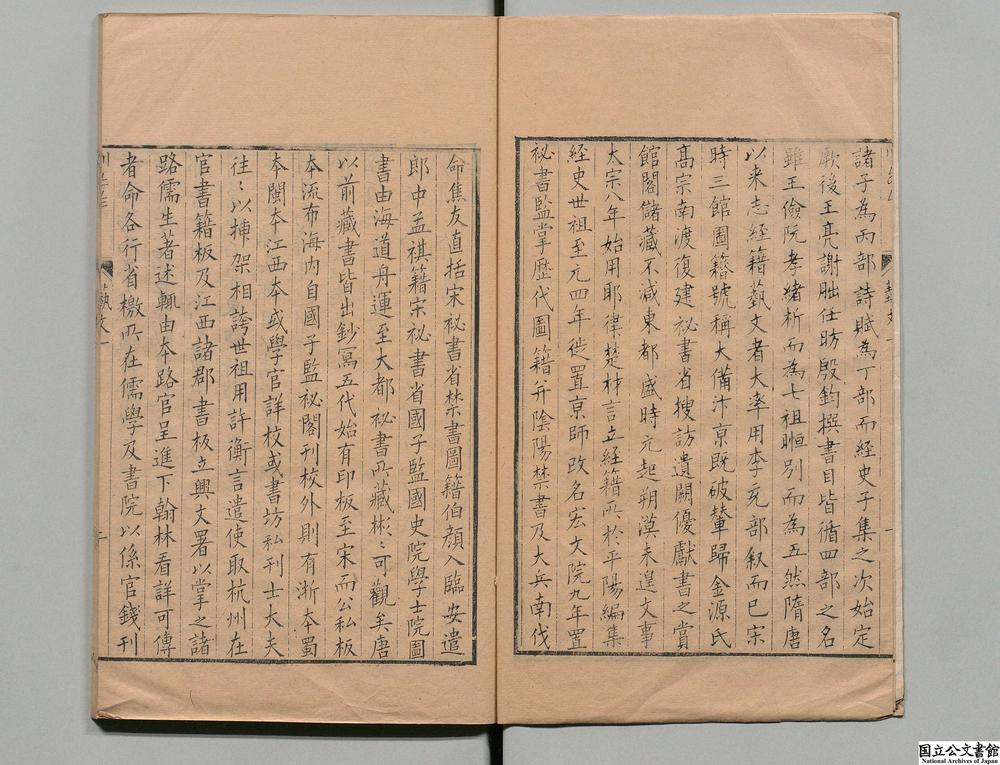 諸子為丙部詩賦為丁部而經史子集之次始定
厥後王亮謝朏任昉殷鈞撰書目皆循四部之名
雖王儉阮孝緒析而為七祖暅別而為五然隋唐
以来志經籍蓺文者大率用李充部叙而已宋
時三館圖籍號稱大備汴京既破輦歸金源氏
髙宗南渡復建祕書省搜訪遺闕優獻書之賞
館閣儲藏不減東都盛時元起朔漠未遑文事
太宗八年始用耶律楚材言立經籍所於平陽編集
經史世祖至元四年徙置京師改名宏文院九年置
祕書監掌歴代圖籍并陰陽禁書及大兵南伐
命焦友直括宋祕書省禁書圖籍伯顔入臨安遣
郎中孟祺籍宋祕書省國子監國史院學士院圖
書由海道舟運至大都祕書所藏彬〻可觀矣唐
以前藏書皆出鈔寫五代始有印板至宋而公私板
本流布海内自國子監祕閣刊校外則有浙本蜀
本閩本江西本或學官詳校或書坊私刊士大夫
往〻以揷架相誇世祖用許衡言遣使取杭州在
官書籍板及江西諸郡書板立興文署以掌之諸
路儒生著述輒由本路官呈進下翰林看詳可傳
者命各行省檄所在儒學及書院以係官錢刊
国立公文書館
National Archives of Japan